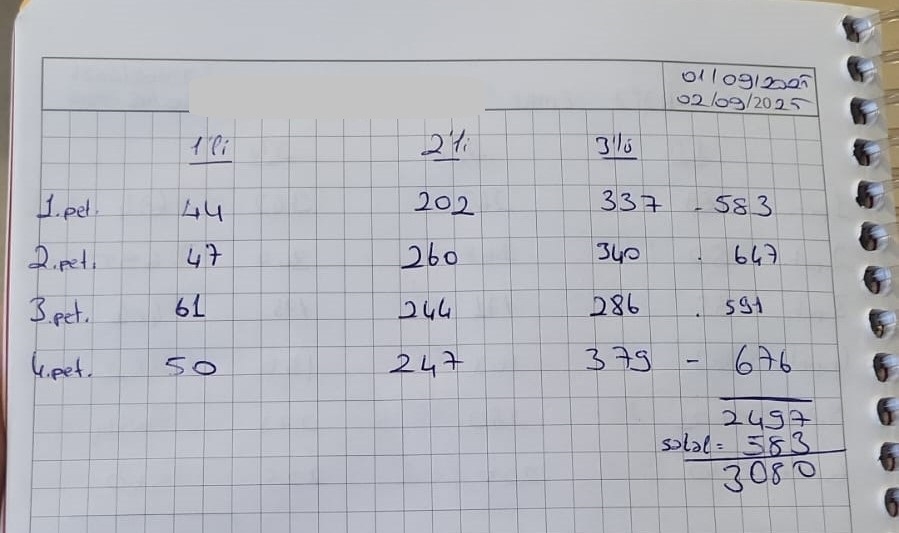 01/09/2025
02/09/2025
1'li 2'li 3'lü
1.pet. 44 202 337 - 583
2.pet. 47 260 340 . 647
3.pet. 61 244 286 . 591
4.pet. 50 247 379 - 676
2497
salal = 583
3080